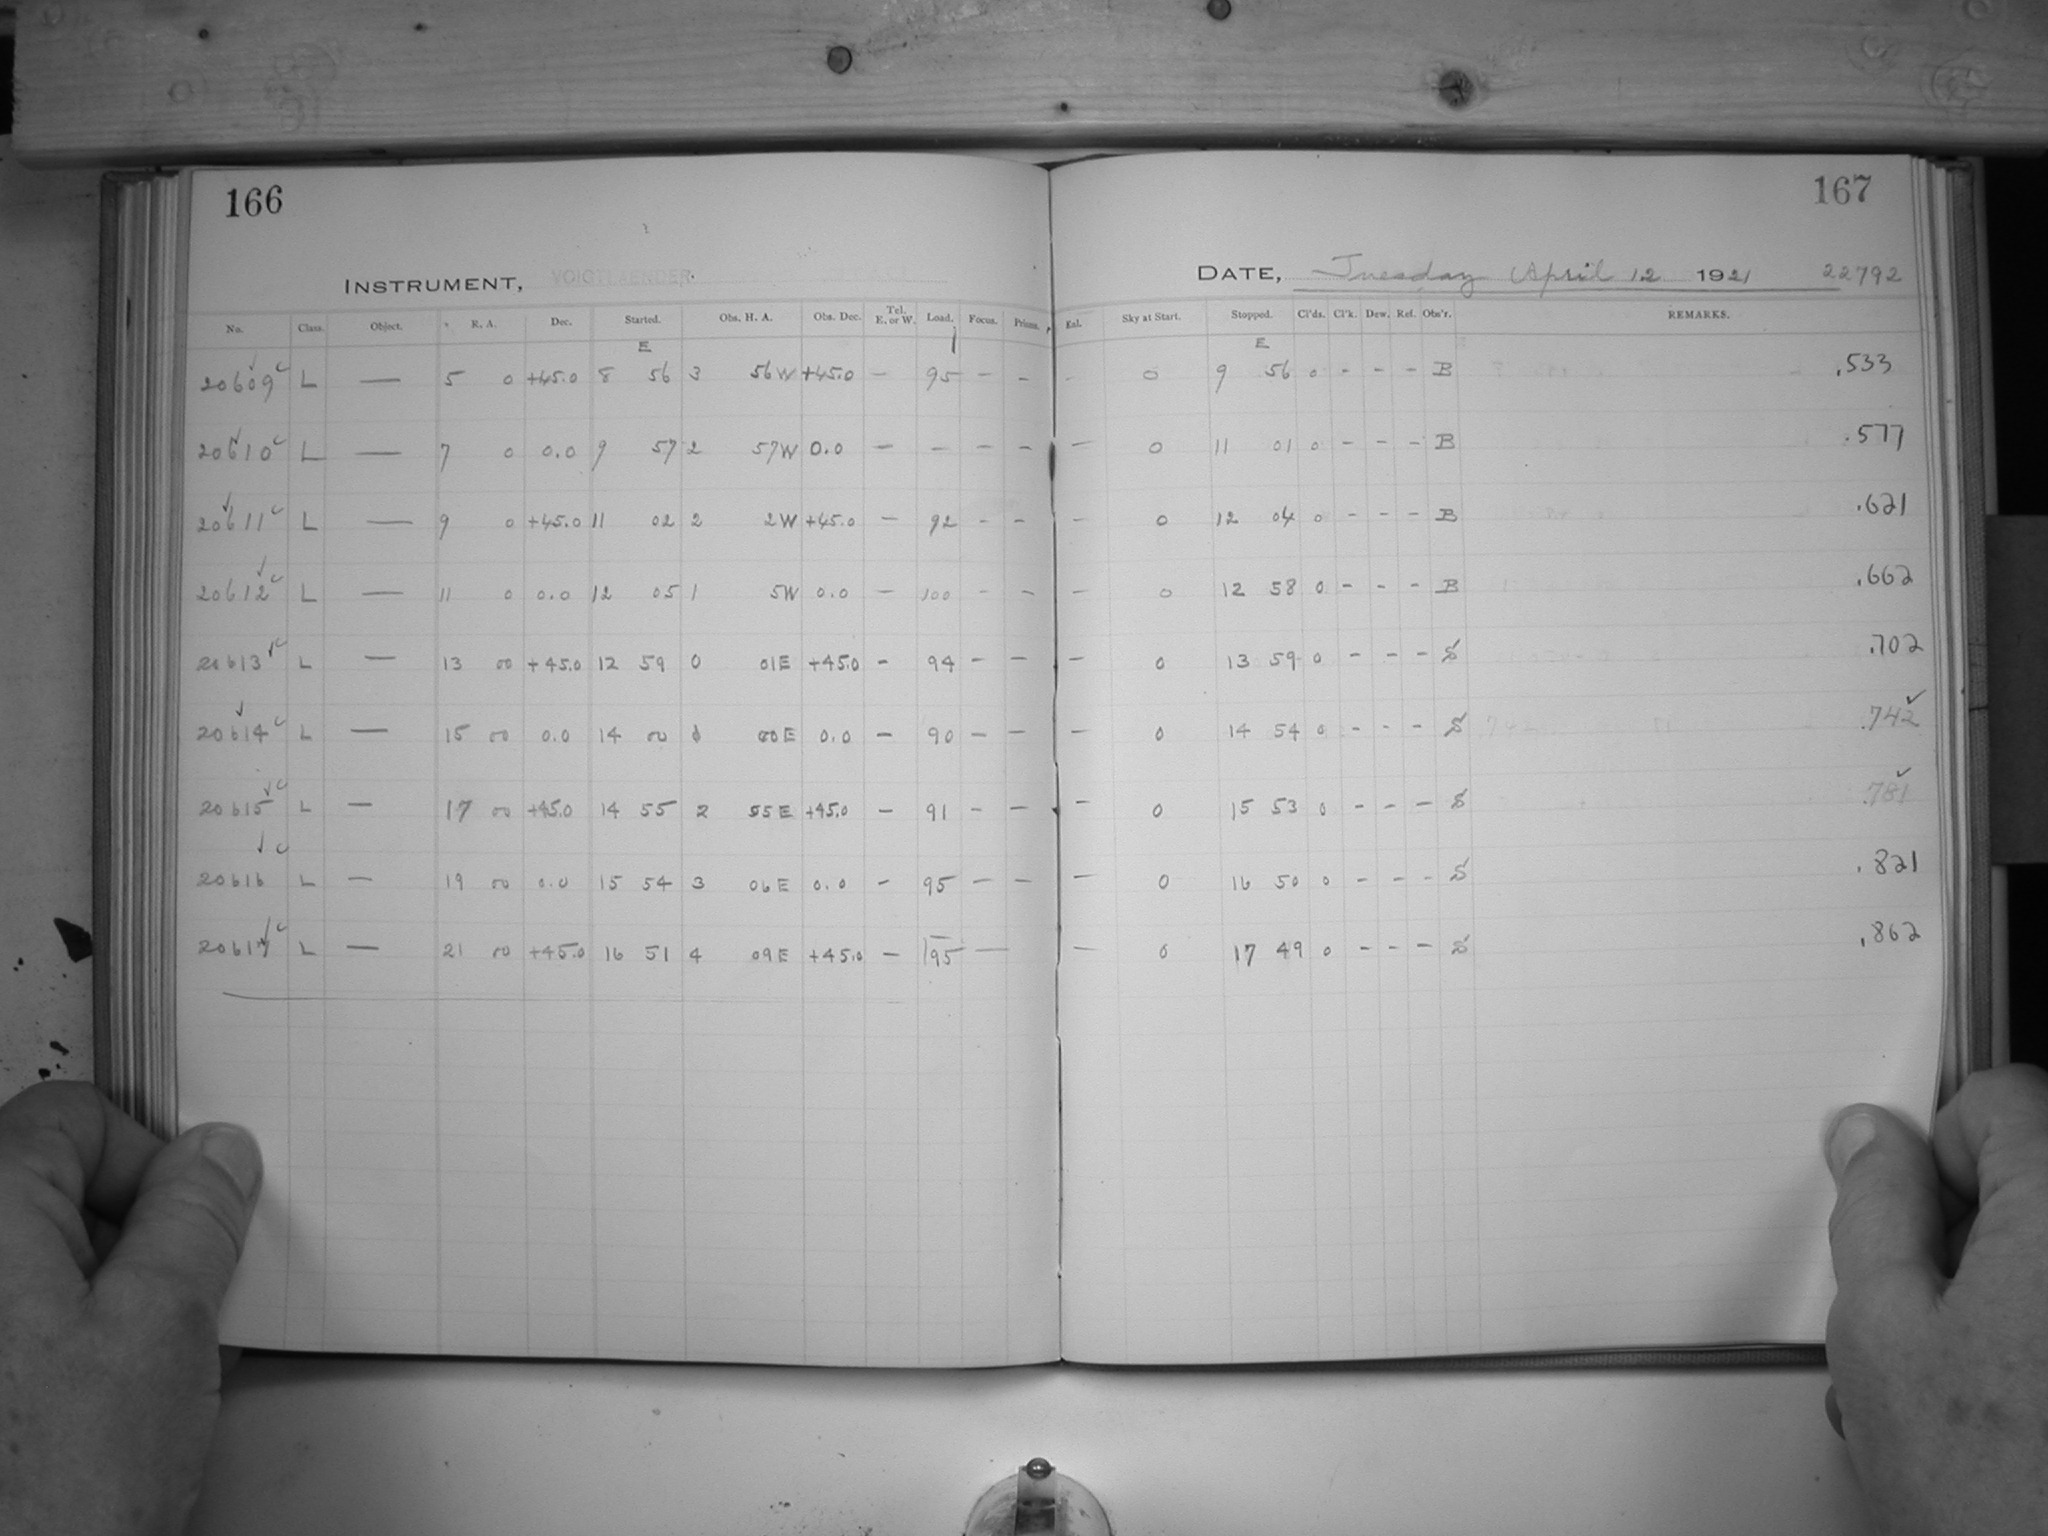 166
167
INSTRUMENT, VOIGTLAENDER
DATE, Tuesday April 12 1921 22792
No. Class. Object. R. A. Dec. Started. Obs. H. A. Obs. Dec. Tel. E. or W. Load. Focus. Prisms. Eal. Sky at Start. Stopped. Cl'ds. Cl'k. Dew. Ref. Obs'r. REMARKS.
E E
20609 L — 5 0 +45.0 8 56 3 56W +45.0 — 95 - - - 0 9 56 0 - - - B .533
20610 L — 7 0 0.0 9 57 2 57W 0.0 — - - - — 0 11 01 0 - - - B .577
20611 L — 9 0 +45.0 11 02 2 2W +45.0 — 92 - - - 0 12 04 0 - - - B .621
20612 L — 11 0 0.0 12 05 1 5W 0.0 — 100 - - - 0 12 58 0 - - - B .662
20613 L — 13 00 +45.0 12 59 0 01E +45.0 - 94 - - - 0 13 59 0 - - - S .702
20614 L — 15 00 0.0 14 00 00E 0.0 - 90 - - - 0 14 54 0 - - - S .742
20615 L — 17 00 +45.0 14 55 2 55E +45.0 - 91 - - - 0 15 53 0 - - - S .781
20616 L — 19 00 0.0 15 54 3 06E 0.0 - 95 - - - 0 16 50 0 - - - S .821
20617 L — 21 00 +45.0 16 51 4 09E +45.0 - 95 — - 0 17 49 0 - - - S .862